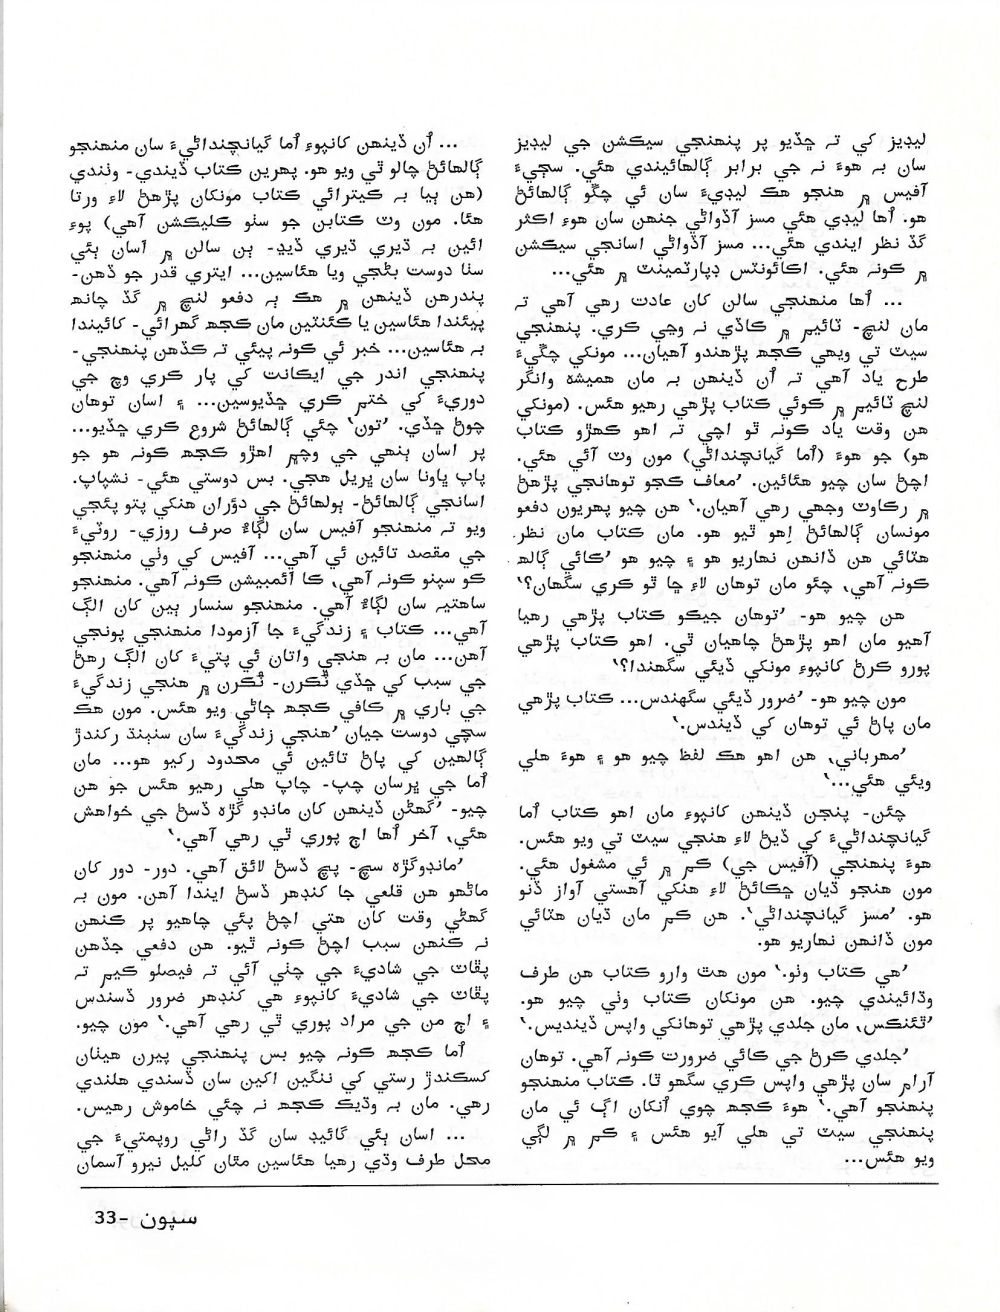 ليڊيز کي تہ ڇڏيو پر پنهنجي سيڪشن جي ليڊيز
سان بہ هوءَ نہ جي برابر ڳالهائيندي هئي. سڄيءَ
آفيس ۾ هنجو هڪ ليڊيءَ سان ئي چڱو ڳالهائڻ
هو. اُها ليڊي هئي مسز آڏواڻي جنهن سان هوءَ اڪثر
گڏ نظر ايندي هئي... مسز آڏواڻي اسانجي سيڪشن
۾ ڪونہ هئي. اڪائونٽس ڊپارٽمينٽ ۾ هئي...
... اُها منهنجي سالن کان عادت رهي آهي تہ
مان لنچ- ٽائيم ۾ ڪاڏي نہ وڃي ڪري. پنهنجي
سيٽ تي ويهي ڪجهہ پڙهندو آهيان... مونکي چڱيءَ
طرح ياد آهي تہ اُن ڏينهن بہ مان هميشہ وانگر
لنچ ٽائيم ۾ ڪوئي ڪتاب پڙهي رهيو هئس. (مونکي
هن وقت ياد ڪونہ ٿو اچي تہ اهو ڪهڙو ڪتاب
هو) جو هوءَ (اُما گيانچنداڻي) مون وٽ آئي هئي.
اچڻ سان چيو هئائين. ’معاف ڪجو توهانجي پڙهڻ
۾ رڪاوٽ وجهي رهي آهيان.‘ هن چيو پهريون دفعو
مونسان ڳالهائڻ اِهو ٿيو هو. مان ڪتاب مان نظر
هٽائي هن ڏانهن نهاريو هو ۽ چيو هو ’ڪائي ڳالهہ
ڪونہ آهي، چئو مان توهان لاءِ ڇا ٿو ڪري سگهان؟‘
هن چيو هو- ’توهان جيڪو ڪتاب پڙهي رهيا
آهيو مان اهو پڙهڻ چاهيان ٿي. اهو ڪتاب پڙهي
پورو ڪرڻ کانپوءِ مونکي ڏيئي سگهندا؟‘
مون چيو هو- ’ضرور ڏيئي سگهندس... ڪتاب پڙهي
مان پاڻ ئي توهان کي ڏيندس.‘
’مهرباني، هن اهو هڪ لفظ چيو هو ۽ هوءَ هلي
ويئي هئي...‘
چئن- پنجن ڏينهن کانپوءِ مان اهو ڪتاب اُما
گيانچنداڻيءَ کي ڏيڻ لاءِ هنجي سيٽ تي ويو هئس.
هوءَ پنهنجي (آفيس جي) ڪم ۾ ئي مشغول هئي.
مون هنجو ڌيان ڇڪائڻ لاءِ هنکي آهستي آواز ڏنو
هو. ’مسز گيانچنداڻي‘. هن ڪم مان ڌيان هٽائي
مون ڏانهن نهاريو هو.
’هي ڪتاب ونو.‘ مون هٿ وارو ڪتاب هن طرف
وڌائيندي چيو. هن مونکان ڪتاب وٺي چيو هو.
’ٿئنڪس، مان جلدي پڙهي توهانکي واپس ڏينديس.‘
’جلدي ڪرڻ جي ڪائي ضرورت ڪونہ آهي. توهان
آرام سان پڙهي واپس ڪري سگهو ٿا. ڪتاب منهنجو
پنهنجو آهي.‘ هوءَ ڪجهہ چوي اُنکان اڳ ئي مان
پنهنجي سيٽ تي هلي آيو هئس ۽ ڪم ۾ لڳي
ويو هئس...
... اُن ڏينهن کانپوءِ اُما گيانچنداڻيءَ سان منهنجو
ڳالهائڻ چالو ٿي ويو هو. پهرين ڪتاب ڏيندي- وٺندي
(هن ٻيا بہ ڪيترائي ڪتاب مونکان پڙهڻ لاءِ ورتا
هئا. مون وٽ ڪتابن جو سٺو ڪليڪشن آهي) پوءِ
ائين بہ ڌيري ڌيري ڏيڍ- ٻن سالن ۾ اسان ٻئي
سٺا دوست بڻجي ويا هئاسين... ايتري قدر جو ڏهن-
پندرهن ڏينهن ۾ هڪ ٻہ دفعو لنچ ۾ گڏ چانهہ
پيئندا هئاسين يا ڪئنٽين مان ڪجهہ گهرائي- کائيندا
بہ هئاسين... خبر ئي ڪونہ پيئي تہ ڪڏهن پنهنجي-
پنهنجي اندر جي ايڪانت کي پار ڪري وچ جي
دوريءَ کي ختم ڪري ڇڏيوسين... ۽ اسان توهان
چوڻ ڇڏي. ’تون‘ چئي ڳالهائڻ شروع ڪري ڇڏيو...
پر اسان ٻنهي جي وچ۾ اهڙو ڪجهہ ڪونہ هو جو
پاپ ڀاونا سان ڀريل هجي. بس دوستي هئي- نشپاپ.
اسانجي ڳالهائڻ- ٻولهائڻ جي دؤران هنکي پتو پئجي
ويو تہ منهنجو آفيس سان لڳاءُ صرف روزي- روٽيءَ
جي مقصد تائين ئي آهي... آفيس کي وٺي منهنجو
ڪو سپنو ڪونہ آهي، ڪا ائمبيشن ڪونہ آهي. منهنجو
ساهتيہ سان لڳاءُ آهي. منهنجو سنسار ٻين کان الڳ
آهي... ڪتاب ۽ زندگيءَ جا آزمودا منهنجي پونجي
آهن... مان بہ هنجي واتان ئي پتيءَ کان الڳ رهڻ
جي سبب کي ڇڏي ٽُڪرن- ٽُڪرن ۾ هنجي زندگيءَ
جي باري ۾ ڪافي ڪجهہ ڄاڻي ويو هئس. مون هڪ
سچي دوست جيان ’هنجي زندگيءَ سان سنٻنڌ رکندڙ
ڳالهين کي پاڻ تائين ئي محدود رکيو هو... مان
اُما جي ڀرسان چپ- چاپ هلي رهيو هئس جو هن
چيو- ’گهڻن ڏينهن کان مانڊو گڙهہ ڏسڻ جي خواهش
هئي، آخر اُها اڄ پوري ٿي رهي آهي.‘
’مانڊوگڙهہ سچ- پچ ڏسڻ لائق آهي. دور- دور کان
ماڻهو هن قلعي جا کنڊهر ڏسڻ ايندا آهن. مون بہ
گهڻي وقت کان هتي اچڻ پئي چاهيو پر ڪنهن
نہ ڪنهن سبب اچڻ ڪونہ ٿيو. هن دفعي جڏهن
پڦاٽ جي شاديءَ جي چٺي آئي تہ فيصلو ڪيم تہ
پڦاٽ جي شاديءَ کانپوءِ هي کنڊهر ضرور ڏسندس
۽ اڄ من جي مراد پوري ٿي رهي آهي.‘ مون چيو.
اُما ڪجهہ ڪونہ چيو بس پنهنجي پيرن هيٺان
کسڪندڙ رستي کي ننگين اکين سان ڏسندي هلندي
رهي. مان بہ وڌيڪ ڪجهہ نہ چئي خاموش رهيس.
... اسان ٻئي گائيڊ سان گڏ راڻي روپمتيءَ جي
محل طرف وڌي رهيا هئاسين مٿان کليل نيرو آسمان
سپون -33